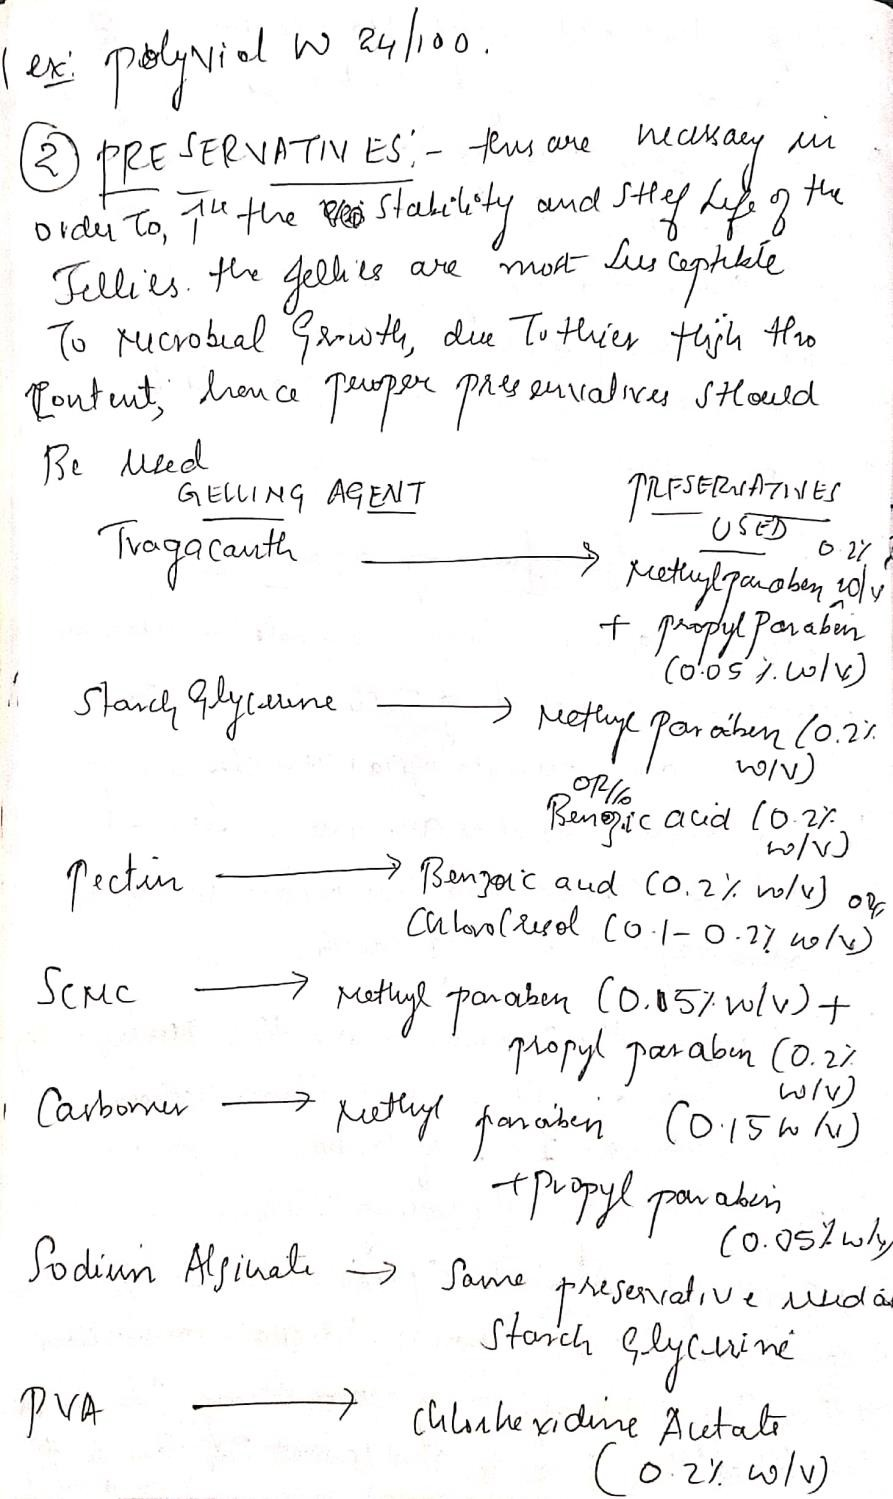 ex: polyviol W 24/100.
② PRESERVATIVES:- these are necessary in
order to, ↑se the stability and SHelf Life of the
Jellies. the Jellies are most Susceptible
To Microbial Growth, due To thier High H2O
Content, hence proper preservatives SHould
Be Used
GELLING AGENT PRESERVATIVES
USED
Tragacanth → Methylparaben 0.2% w/v
+ propyl Paraben
(0.05 %. w/v)
Starch Glycerine → Methyl Paraben (0.2%
w/v)
OR
Benzoic acid (0.2%
w/v)
Pectin → Benzoic acid (0.2% w/v) OR
ChloroCresol (0.1-0.2% w/v)
SCMC → Methyl paraben (0.15% w/v) +
propyl paraben (0.2%
w/v)
Carbomer → Methyl paraben (0.15 w/v)
+ propyl paraben
(0.05% w/v)
Sodium Alginate → Same preservative used as
Starch Glycerine
PVA → Chlorhexidine Acetate
(0.2% w/v)